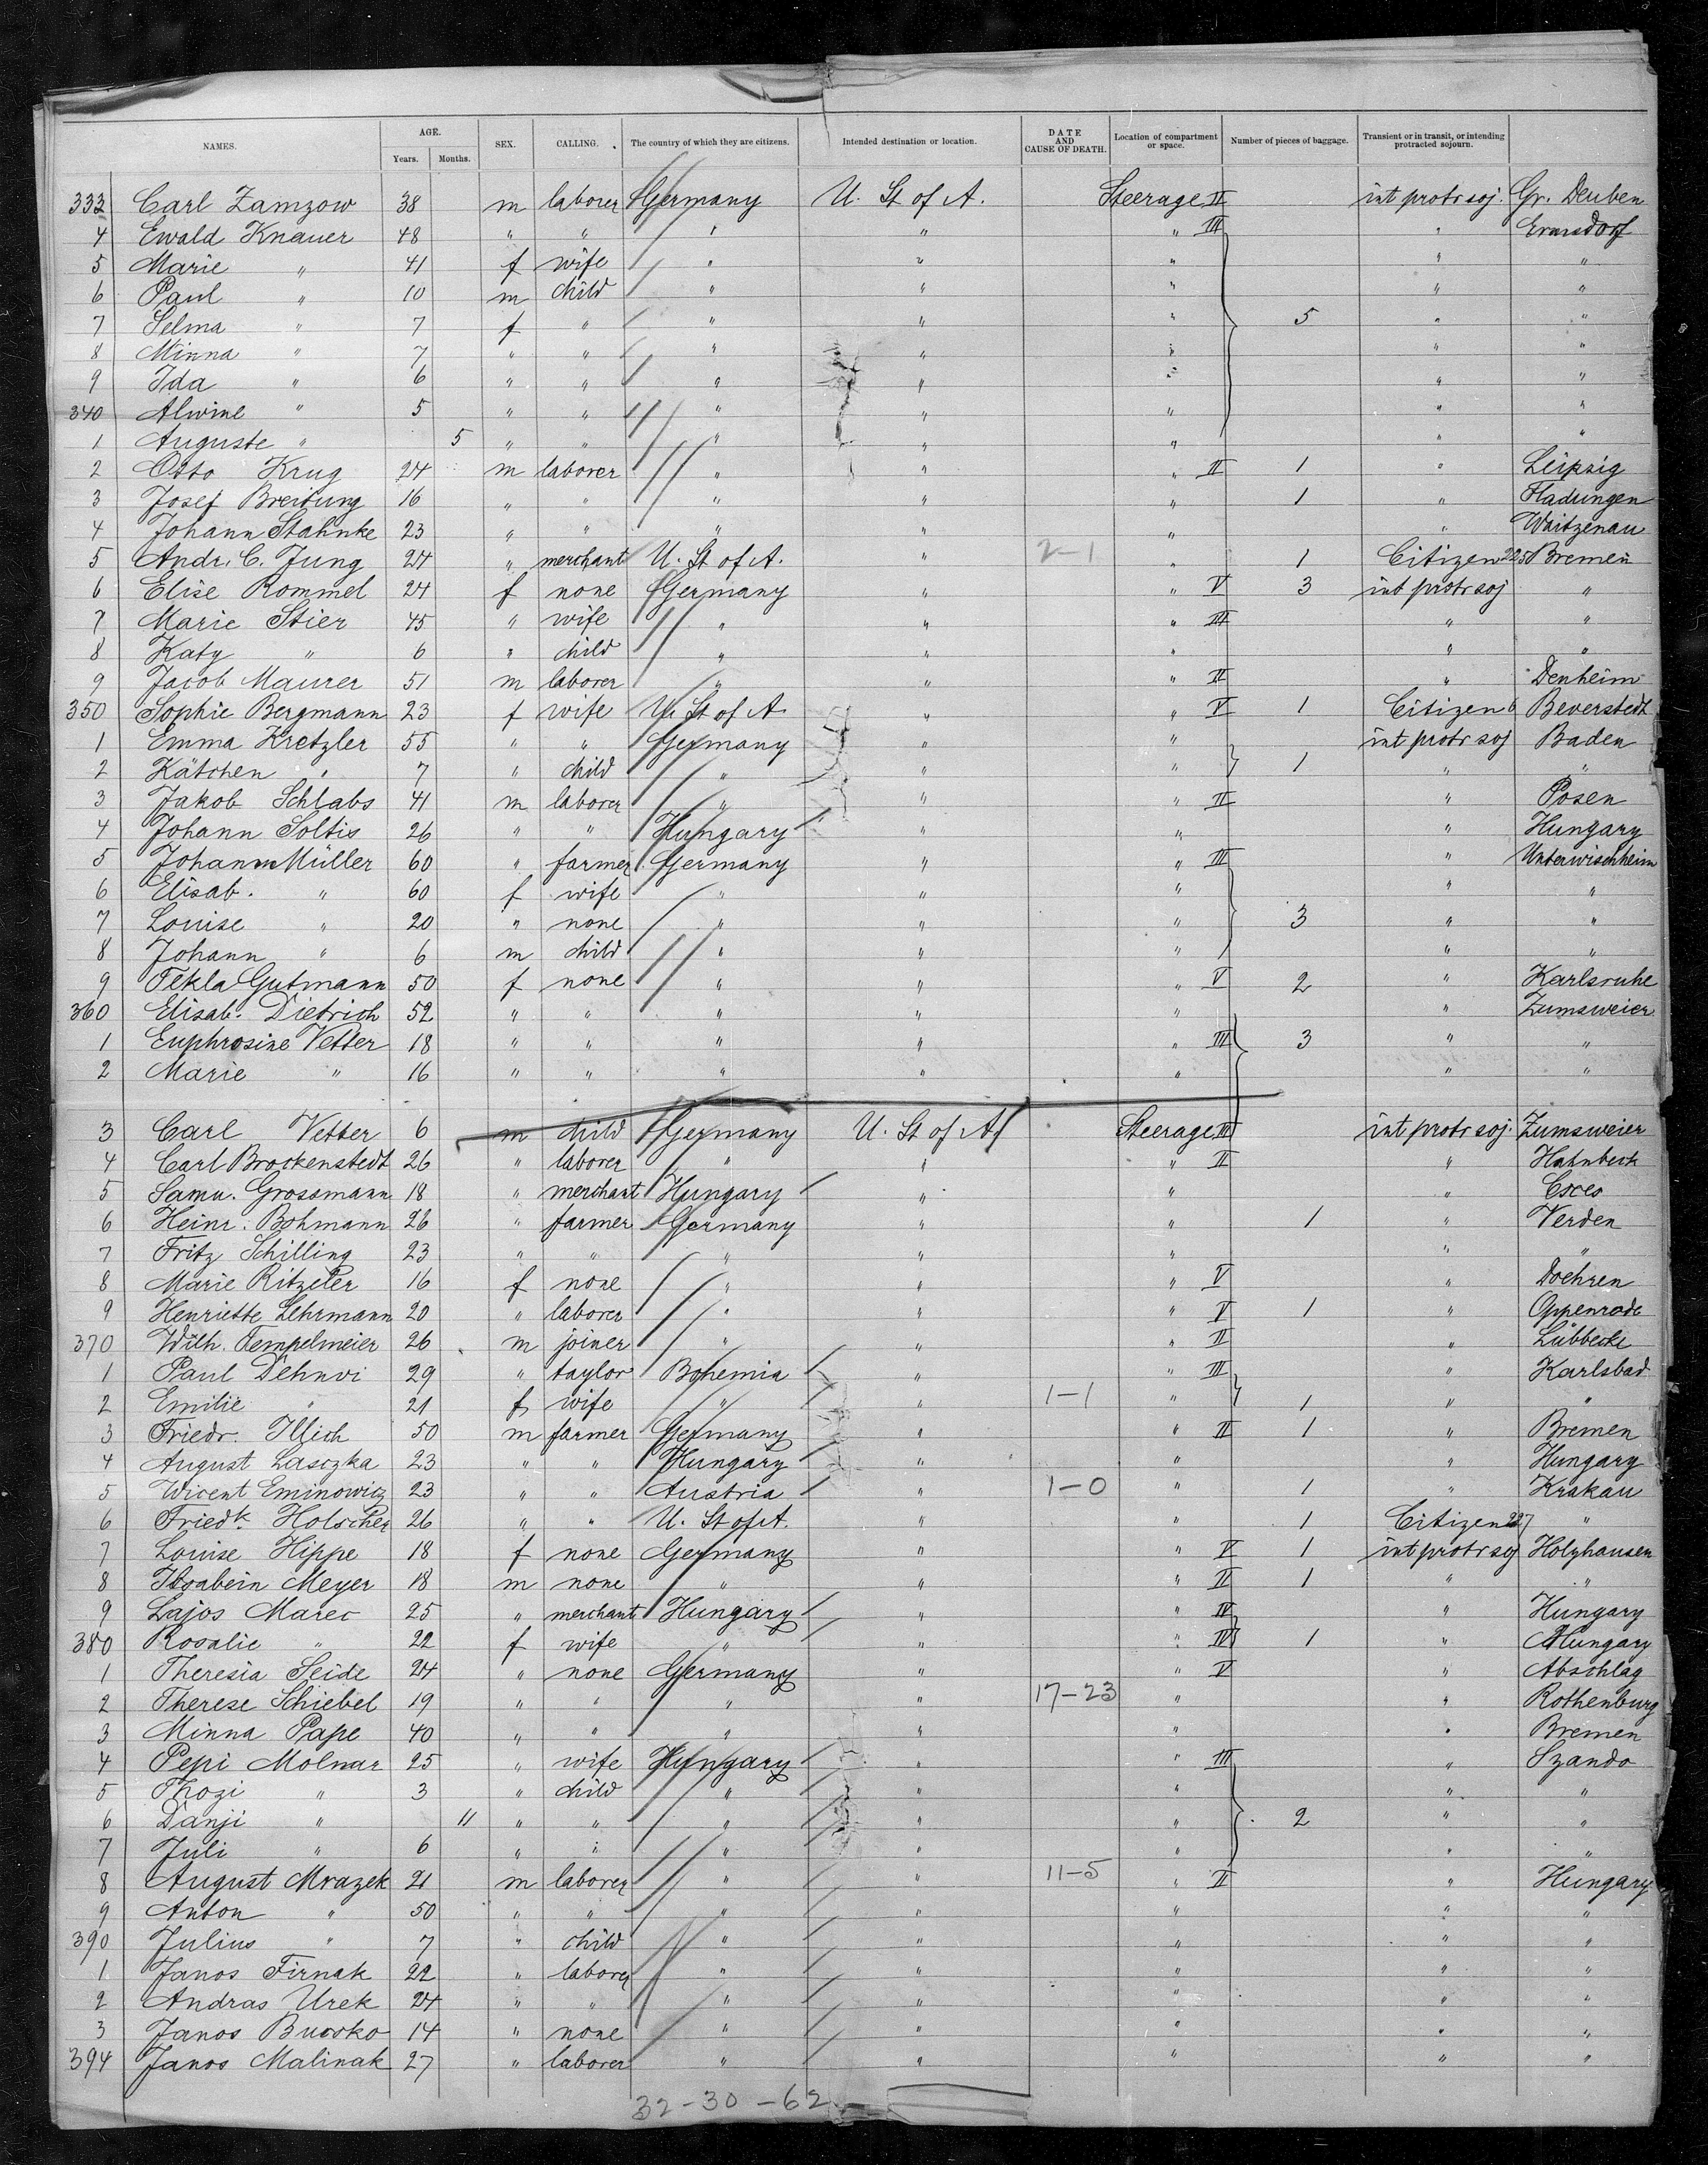 NAMES. AGE. Years. Months. SEX. CALLING. The country of which they are citizens. Intended destination or location. DATE AND CAUSE OF DEATH. Location of compartment or space. Number of pieces of baggage. Transient or in transit, or intending protracted sojourn.
333 Carl Zamzow 38 m laborer Germany U. St of A. Steerage II int protr soj. Gr. Deuben
4 Ewald Knauer 48 " " " " " III "
5 Marie " 41 f wife " " " " "
6 Paul " 10 m child " " " " "
7 Selma " 7 f " " " " 5 " "
8 Minna " 7 " " " " " " "
9 Ida " 6 " " " " " " "
340 Alwine " 5 " " " " " " "
1 Auguste " 5 " " " " " " "
2 Otto Krug 24 m laborer " " " II 1 " Leipzig
3 Josef Breitung 16 " " " " " 1 " Fladungen
4 Johann Stahnke 23 " " " " " " Waitzenau
5 Andr. C. Jung 24 " merchant U. St of A. " 2-1 " 1 Citizen 225 Bremen
6 Elise Rommel 24 f none Germany " " V 3 int protr soj "
7 Marie Stier 45 " wife " " " III " "
8 Katy " 6 " child " " " " "
9 Jacob Maurer 51 m laborer " " " II " Denheim
350 Sophie Bergmann 23 f wife U. St of A. " " V 1 Citizen 6 Beverstedt
1 Emma Kretzler 55 " " Germany " " int protr soj Baden
2 Kätchen " 7 " child " " " 1 " "
3 Jakob Schlabs 41 m laborer " " " II " Posen
4 Johann Soltis 26 " " Hungary " " " Hungary
5 Johann Müller 60 " farmer Germany " " III " Unterwischheim
6 Elisab. " 60 f wife " " " " "
7 Louise " 20 " none " " " 3 " "
8 Johann " 6 m child " " " " "
9 Tekla Gutmann 50 f none " " " V 2 " Karlsruhe
360 Elisab. Dietrich 52 " " " " " " Zumsweier
1 Euphrosine Vetter 18 " " " " " III 3 " "
2 Marie " 16 " " " " " " "
3 Carl Vetter 6 m child Germany U. St of A. Steerage III int protr soj. Zumsweier
4 Carl Brockenstedt 26 " laborer " " " II " Hahnbeck
5 Samu. Grossmann 18 " merchant Hungary " " "
6 Heinr. Bohmann 26 " farmer Germany " " 1 " Verden
7 Fritz Schilling 23 " " " " " " "
8 Marie Ritzeler 16 f none " " " V Doehren
9 Henriette Lehrmann 20 " laborer " " " V 1 " Oppenrode
370 Wilh. Tempelmeier 26 m joiner " " " II " Lübbecke
1 Paul Dehnvi 29 " taylor Bohemia " " III " Karlsbad
2 Emilie " 21 f wife " " 1-1 " 1 " "
3 Friedr. Illich 50 m farmer Germany " " II 1 " Bremen
4 August Lasczka 23 " " Hungary " " " Hungary
5 Wicent Eminowicz 23 " " Austria " 1-0 " 1 " Krakau
6 Friedk. Holscher 26 " " U. St of A. " " 1 Citizen 227 "
7 Louise Hippe 18 f none Germany " " V 1 int protr soj Holzhausen
8 Meyer 18 m none " " " II 1 " "
9 Lajos Marec 25 " merchant Hungary " " IV " Hungary
380 Rosalie " 22 f wife " " " IV 1 " Hungary
1 Theresia Seide 24 " none Germany " " V " Abschlag
2 Therese Schiebel 19 " " " " 17-23 " " Rothenburg
3 Minna Pape 40 " " " " " " Bremen
4 Pepi Molnar 25 " wife Hungary " " III " Szando
5 Thozi " 3 " child " " " " "
6 Danji " 11 " " " " " 2 " "
7 Juli " 6 " " " " " " "
8 August Mrazek 21 m laborer " " 11-5 " II " Hungary
9 Anton " 50 " " " " " " "
390 Julius " 7 " child " " " " "
1 Janos Firnak 22 " laborer " " " " "
2 Andras Urek 24 " " " " " " "
3 Janos Bucsko 14 " none " " " " "
394 Janos Malinak 27 " laborer " " " " "
32-30-62